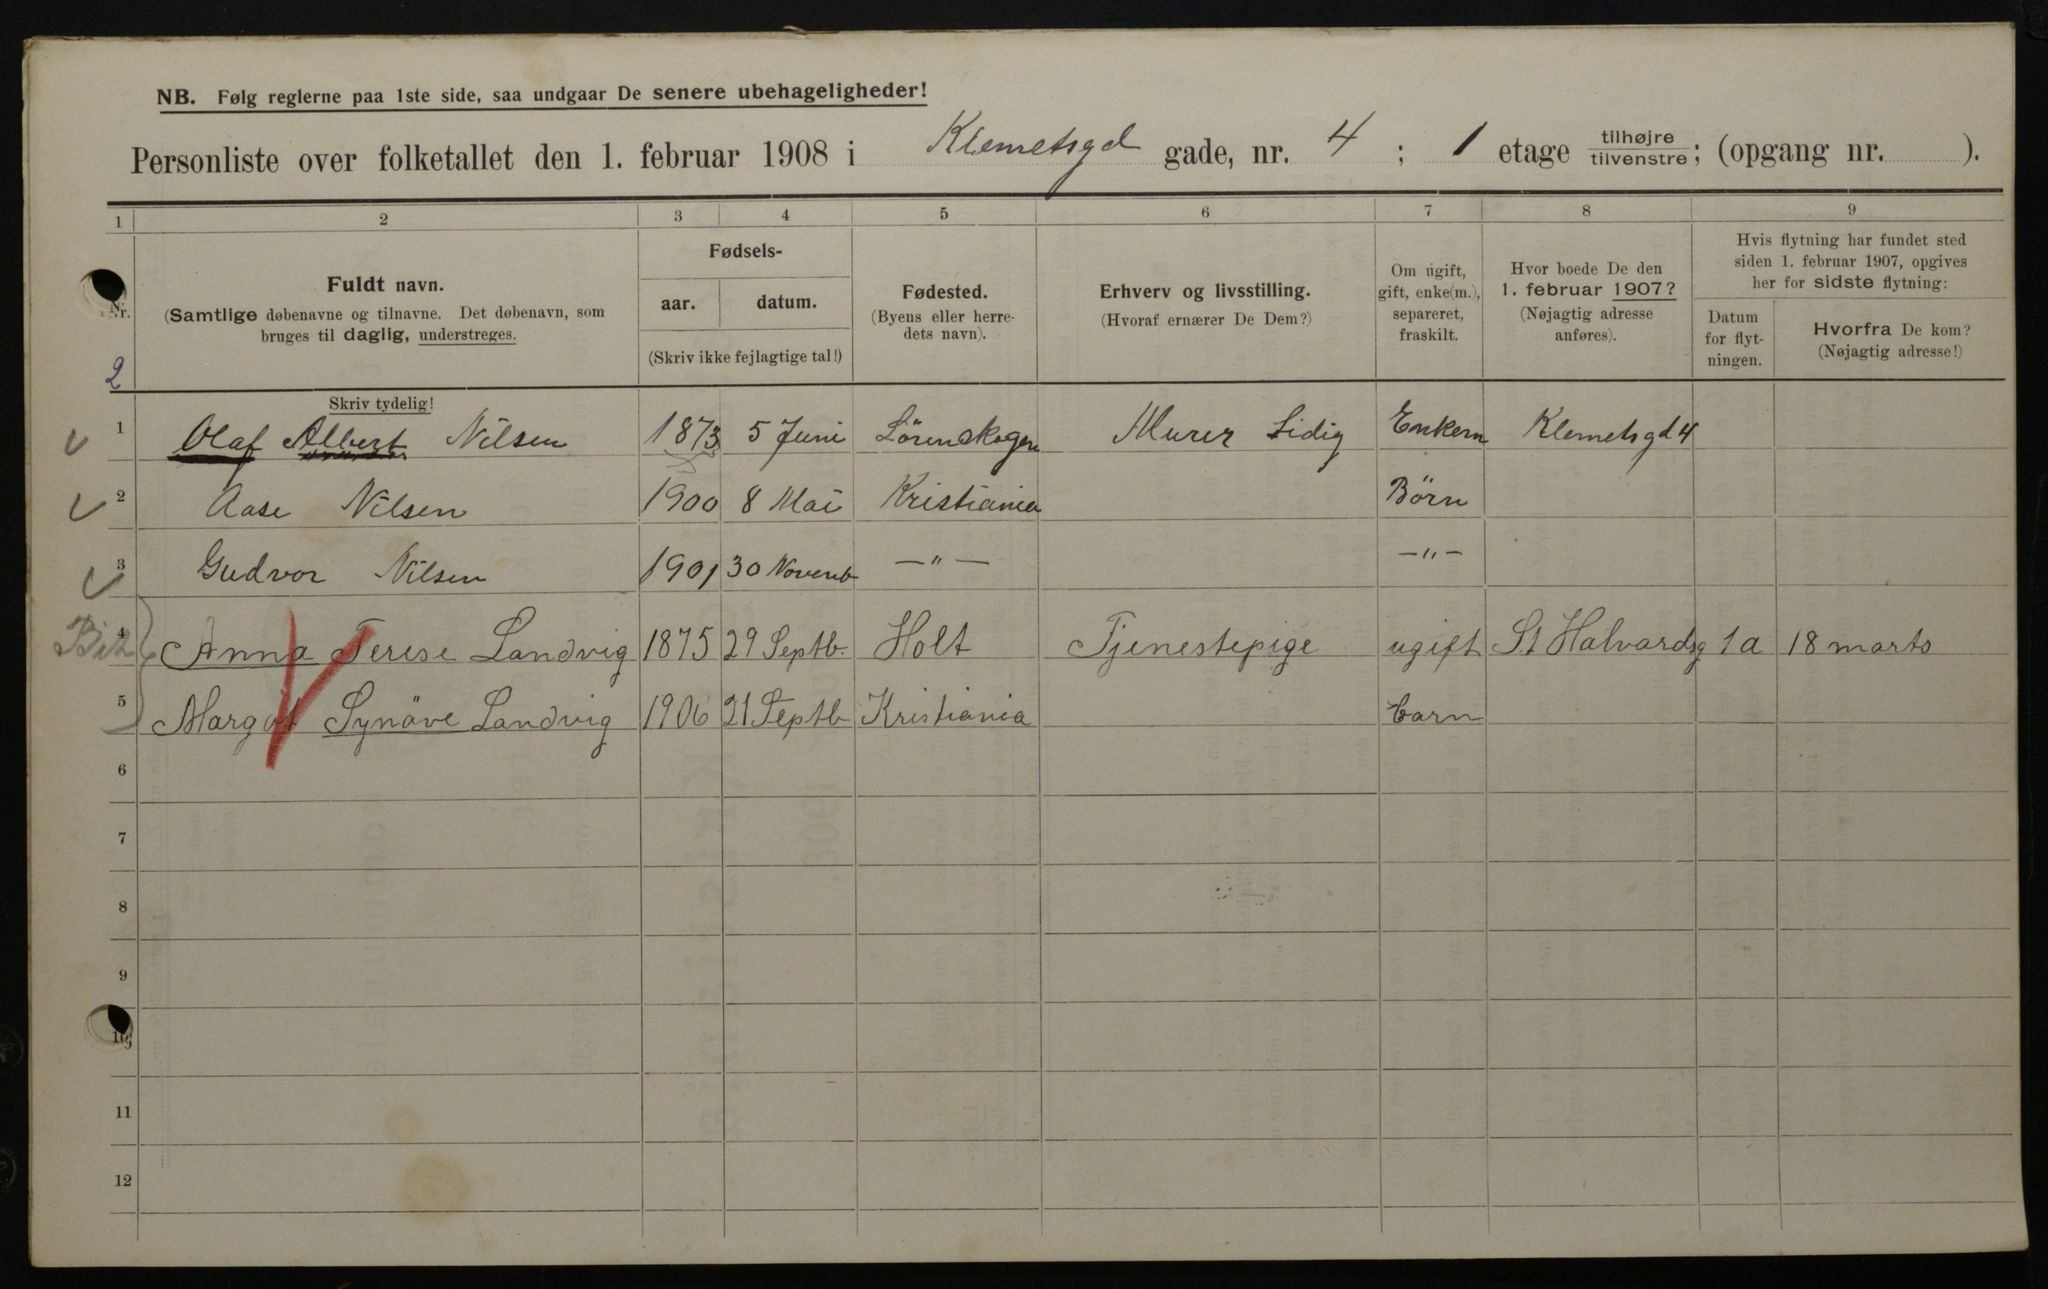 NB. Følg reglerne paa 1ste side, saa undgaar De senere ubehageligheder!
Personliste over folketallet den 1. februar 1908 i Klemetsgd gade, nr. 4 ; 1 etage tilhøjre tilvenstre; (opgang nr. ).
1 2 3 4 5 6 7 8 9
Nr.
2
Fuldt navn.
(Samtlige døbenavne og tilnavne. Det døbenavn, som
bruges til daglig, understreges.
Skriv tydelig!
Fødsels-
aar. datum.
(Skriv ikke fejlagtige tal!)
Fødested.
(Byens eller herre-
dets navn).
Erhverv og livsstilling.
(Hvoraf ernærer De Dem?)
Om ugift,
gift, enke(m.),
separeret,
fraskilt.
Hvor boede De den
1. februar 1907?
(Nøjagtig adresse
anføres).
Hvis flytning har fundet sted
siden 1. februar 1907, opgives
her for sidste flytning:
Datum
for flyt-
ningen.
Hvorfra De kom?
(Nøjagtig adresse!)
1 Olaf Albert Nilsen 1873 5 Juni Lørenskogen Murer Ledig Enkem Klemetsgd 4
2 Aase Nilsen 1900 8 Mai Kristiania Børn
3 Gudvor Nilsen 1901 30 Novemb —"— —"—
4 Anna Terese Landvig 1875 29 Septb. Holt Tjenestepige ugift St Halvardsg 1a 18 marts
5 Margot Synöve Landvig 1906 21 Septb Kristiania barn
6
7
8
9
10
11
12